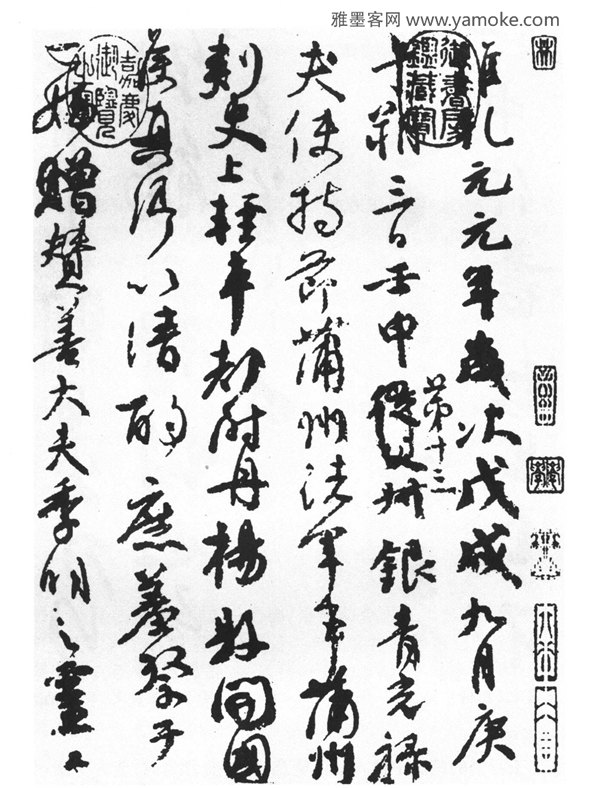 雅墨客网 www.yamoke.com
維乾元元年歲次戊戌九月庚
午朔三日壬申第十三叔銀青光祿
夫使持節蒲州諸軍事蒲州
刺史上輕車都尉丹楊縣開國
侯真卿以清酌庶羞祭于
亡姪贈贊善大夫季明之靈曰
御書房鑑藏寶
嘉慶御覽之寶